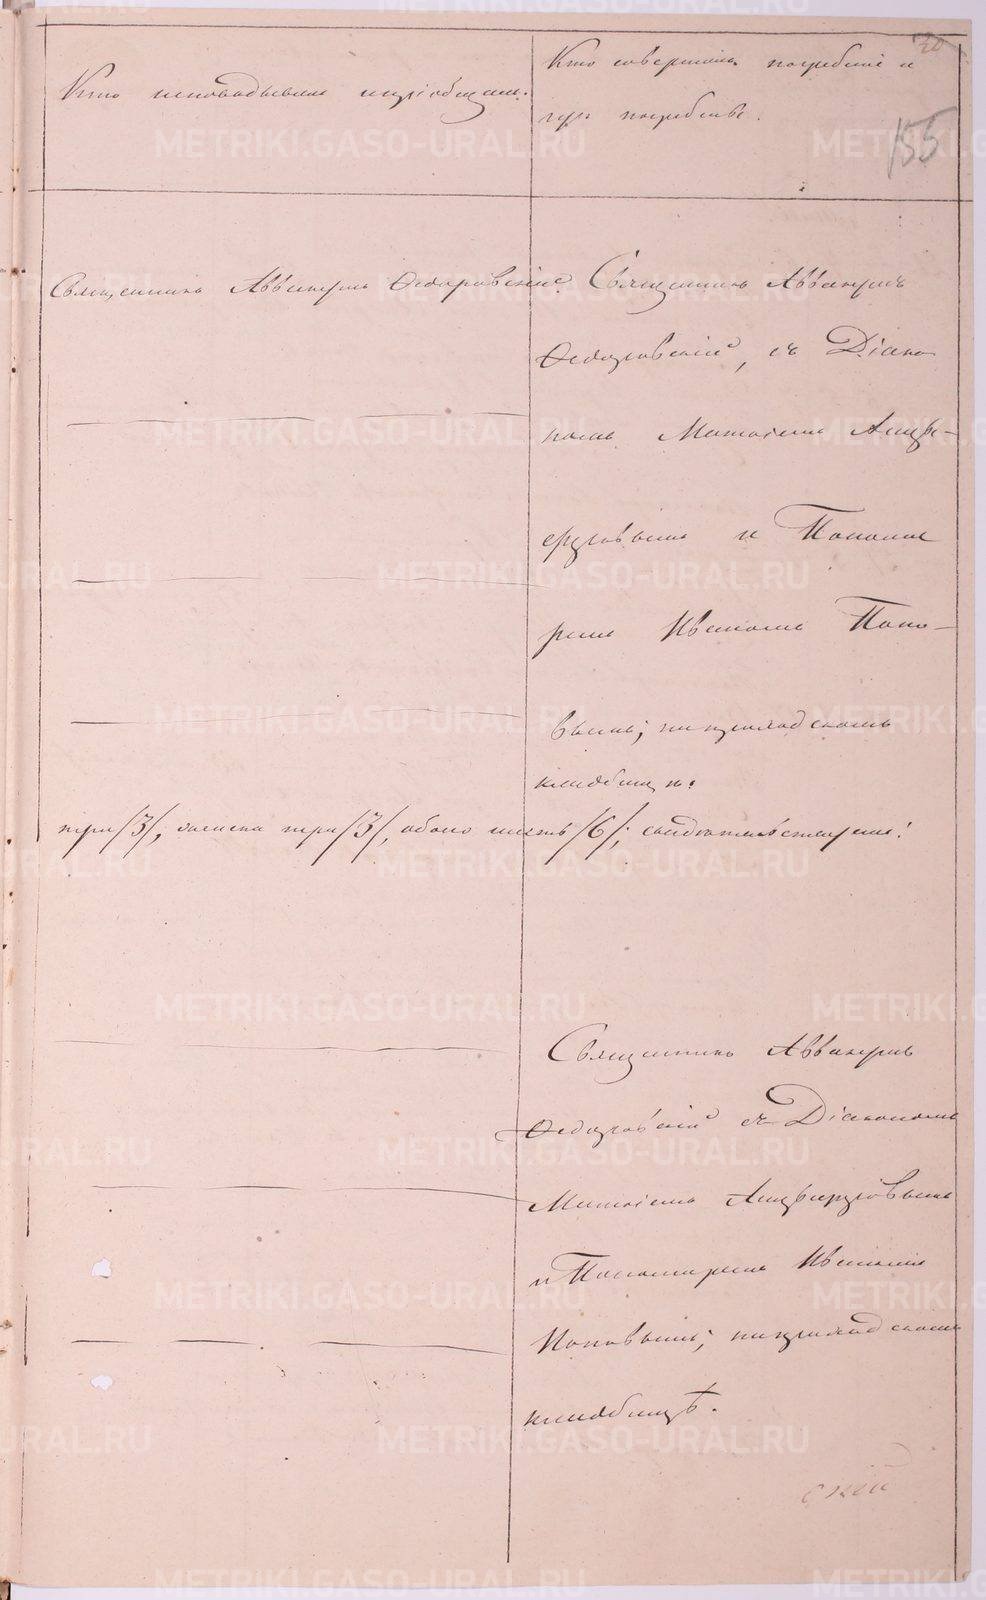 30
155
Кто исповѣдывалъ и пріобщалъ.
Кто совершалъ погребеніе и
гдѣ погребены.
Священникъ Аввакумъ Ѳедоровскій.
Священникъ Аввакумъ
Ѳедоровскій, съ Діако
номъ Матѳіемъ
и Понома
ремъ Иваномъ Попо-
вымъ; на приходскомъ
кладбищѣ.
три /3/, женска три /3/, обоего шесть /6/;
Священникъ Аввакумъ
Ѳедоровскій съ Діакономъ
Матѳіемъ
и Пономаремъ Иваномъ
Поповымъ; на приходскомъ
кладбищѣ.
скій
METRIKI.GASO-URAL.RU